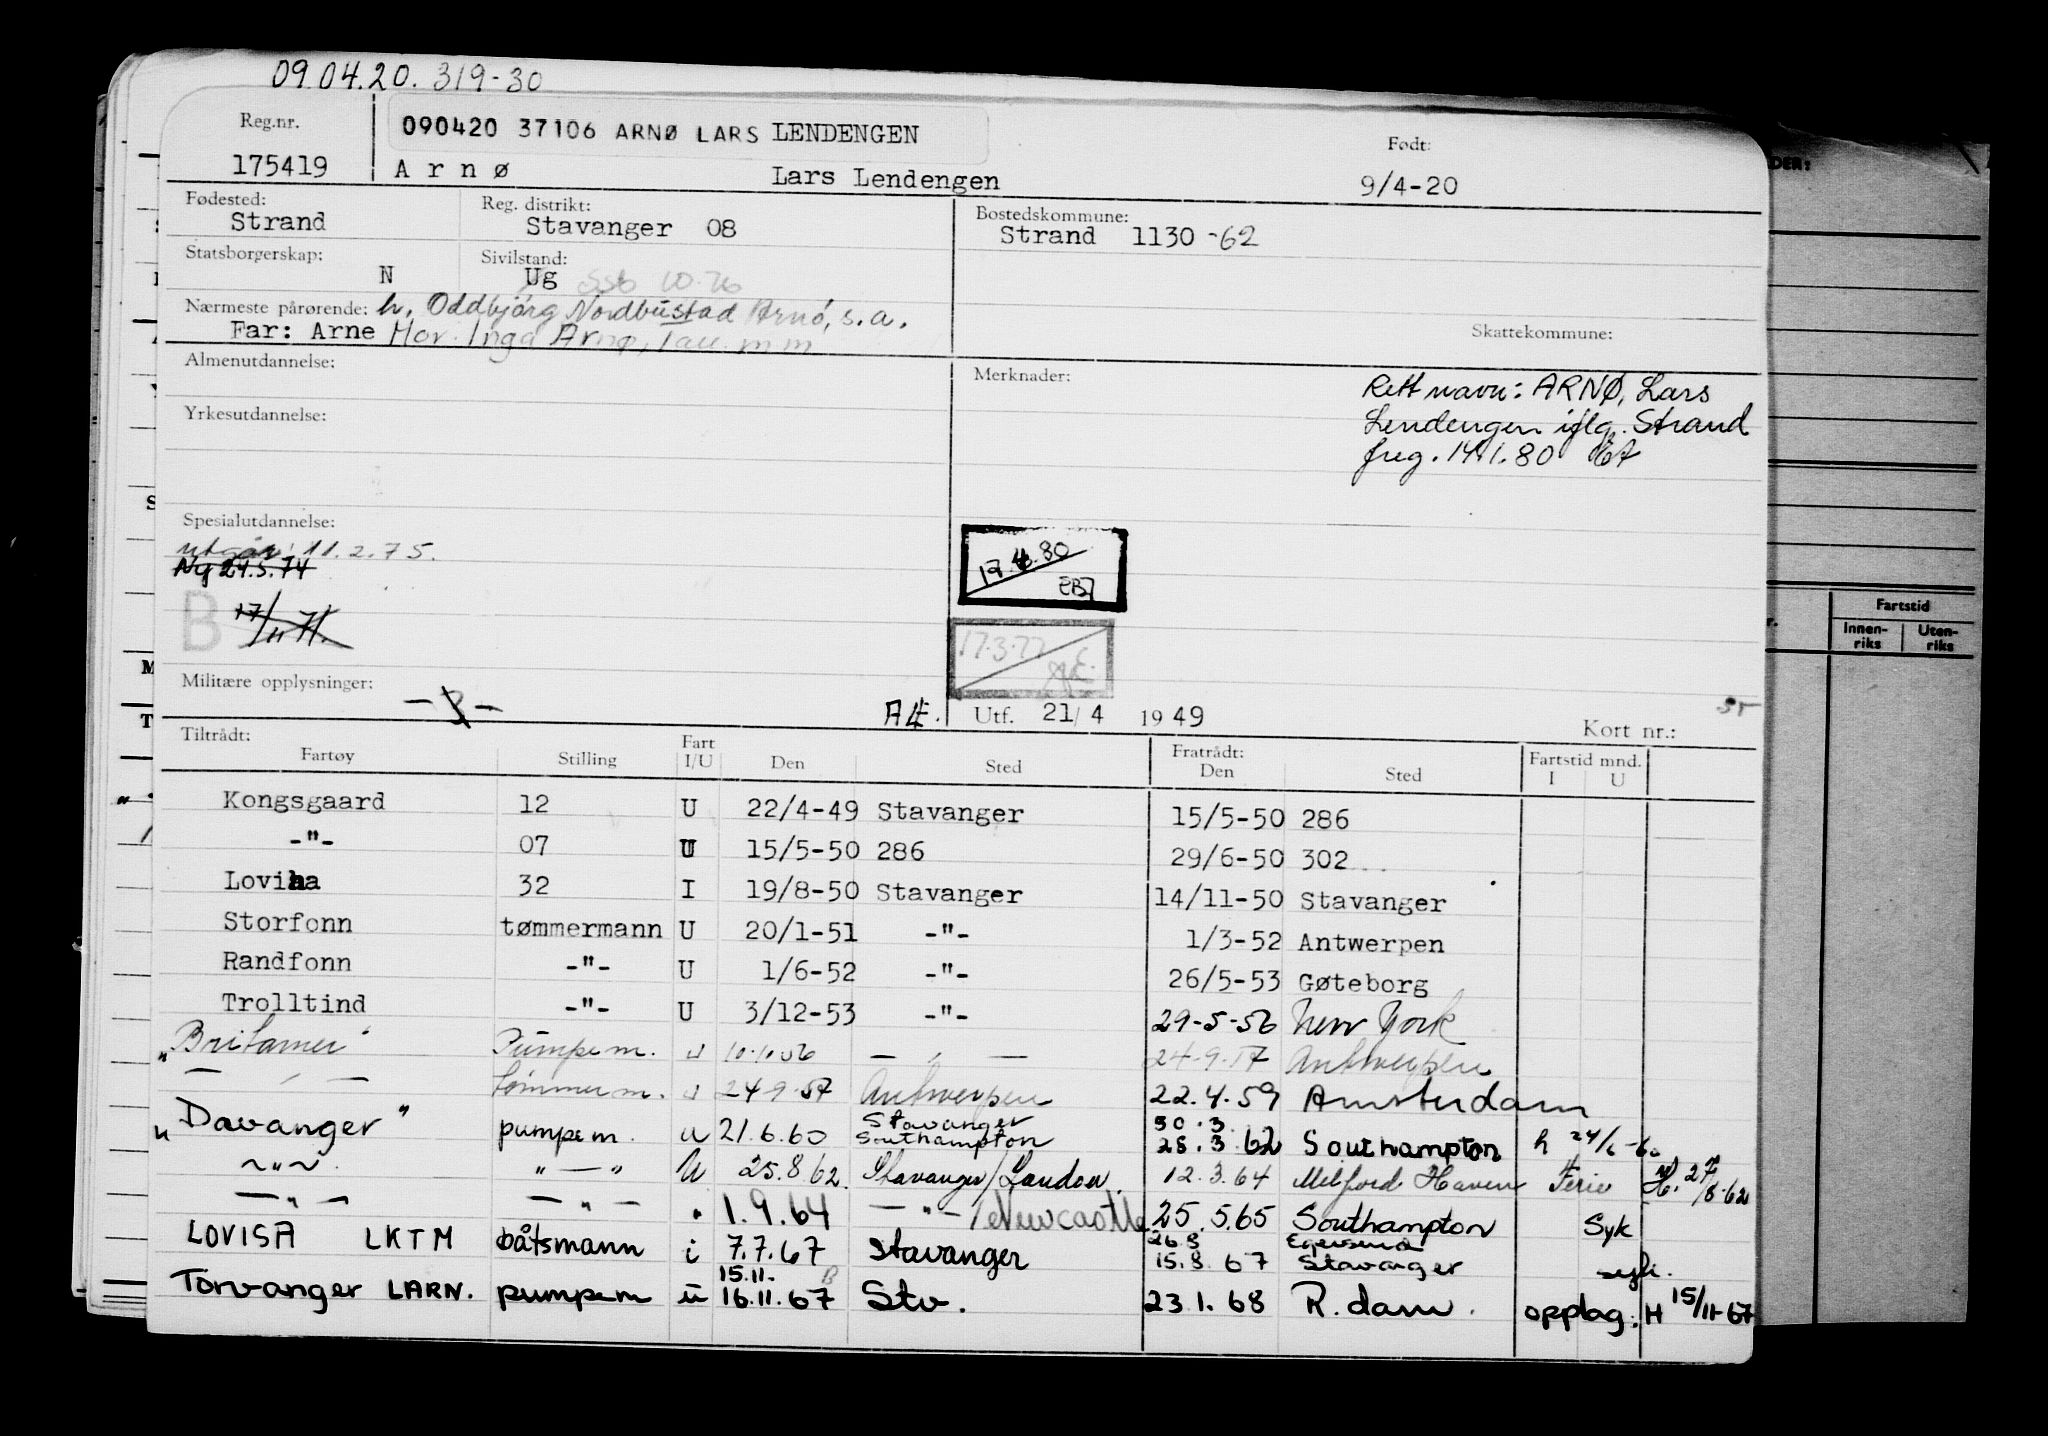 09.04.20. 319-30
Reg.nr. 090420 37106 ARNØ LARS LENDENGEN Født:
175419 Arnø Lars Lendengen 9/4-20
Fødested: Reg. distrikt: Bostedskommune:
Strand Stavanger 08 Strand 1130 -62
Statsborgerskap: Sivilstand:
N Ug SSb 10.76
Nærmeste pårørende: h. Oddbjørg Nordbustad Arnø, s.a.
Far: Arne Mor. Inga Arnø, Tau. m m Skattekommune:
Almenutdannelse: Merknader: Rett navn: ARNØ, Lars
Yrkesutdannelse: Lendengen iflg. Strand
freg. 14.1.80
Spesialutdannelse:
utgår 11.2.75.
Ny 24.5.74
17.4.80
EBJ
B 17/11 71.
17.3.77
Militære opplysninger:
AÆ. Utf. 21/4 1949 Kort nr.:
Tiltrådt: Fart Fratrådt: Fartstid mnd.
Fartøy Stilling I/U Den Sted Den Sted I U
Kongsgaard 12 U 22/4-49 Stavanger 15/5-50 286
-"- 07 U 15/5-50 286 29/6-50 302
Loviha 32 I 19/8-50 Stavanger 14/11-50 Stavanger
Storfonn tømmermann U 20/1-51 -"- 1/3-52 Antwerpen
Randfonn -"- U 1/6-52 -"- 26/5-53 Gøteborg
Trolltind -"- U 3/12-53 -"- 29-5-56 New York
"Britamer" Pumpem. u 10.10.56 — " — 24.9.57 Antwerpen
— " — tømmerm. u 24.9.57 Antwerpen 22.4.59 Amsterdam
"Davanger" pumpem. u 21.6.60 Stavanger Southampton 30.3 28.3.62 Southampton h 24/6-60
~"~ "—" U 25.8.62. Stavanger/London. 12.3.64 Milford Haven Ferie H. 27/8-62
—"— —"— " 1.9.64 —"—/Newcastle 25.5.65 Southampton Syk
LOVISA LKTM båtsmann i 7.7.67 Stavanger 26.8 15.8.67 Egersund Stavanger
Torvanger LARN. pumpem u 15.11.- 16.11.67 Stv. 23.1.68 R.dam. opplag. H 15/11-67
DER:
Fartstid
Innenriks Utenriks